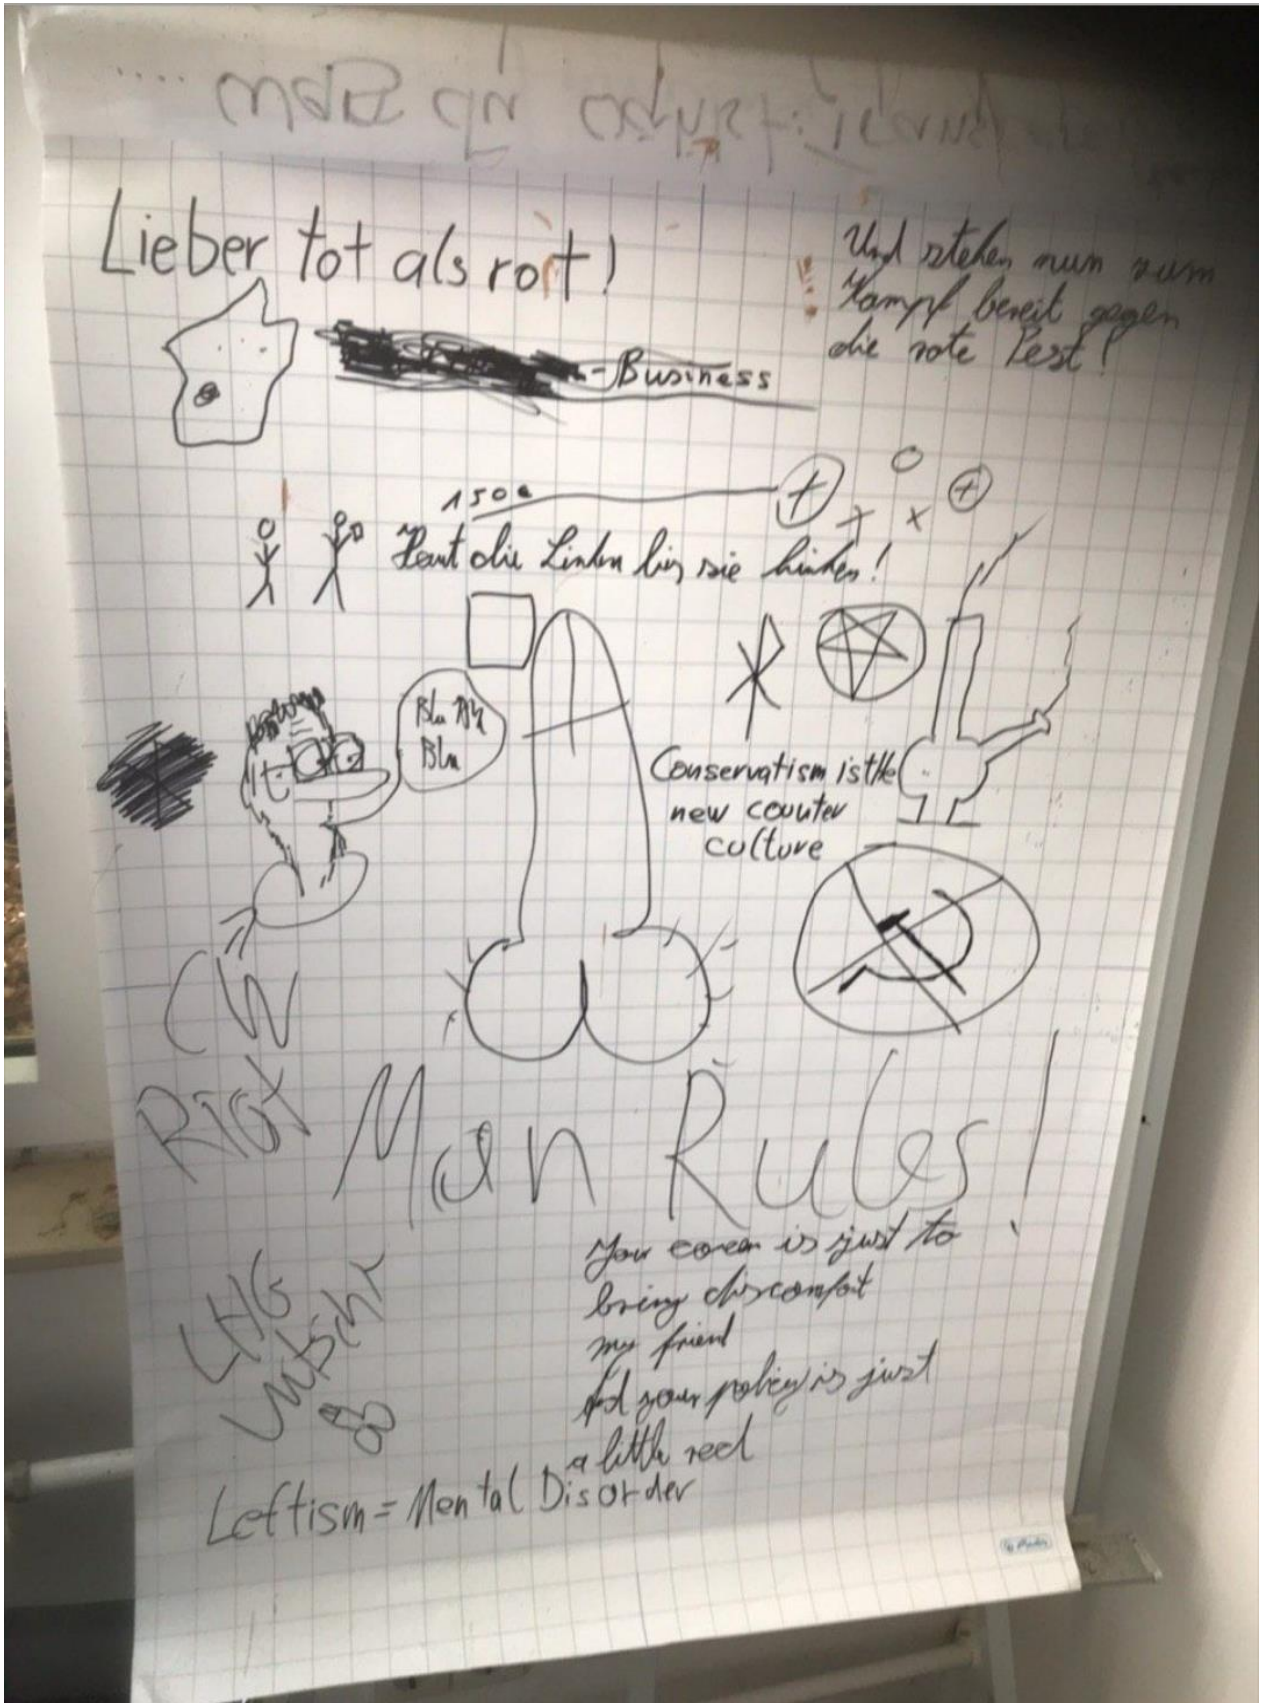 Lieber tot als rot!
Und stehen nun zum
Kampf bereit gegen
die rote Pest!
-Business
150€
Haut die Linken bis sie hinken!
Bla Bla
Bla
Conservatism is the
new counter
culture
Riot
Man Rules!
Your is just to
bring discomfort
my friend
And your policy is just
a little red
LHG
lutscht
Leftism = Mental Disorder